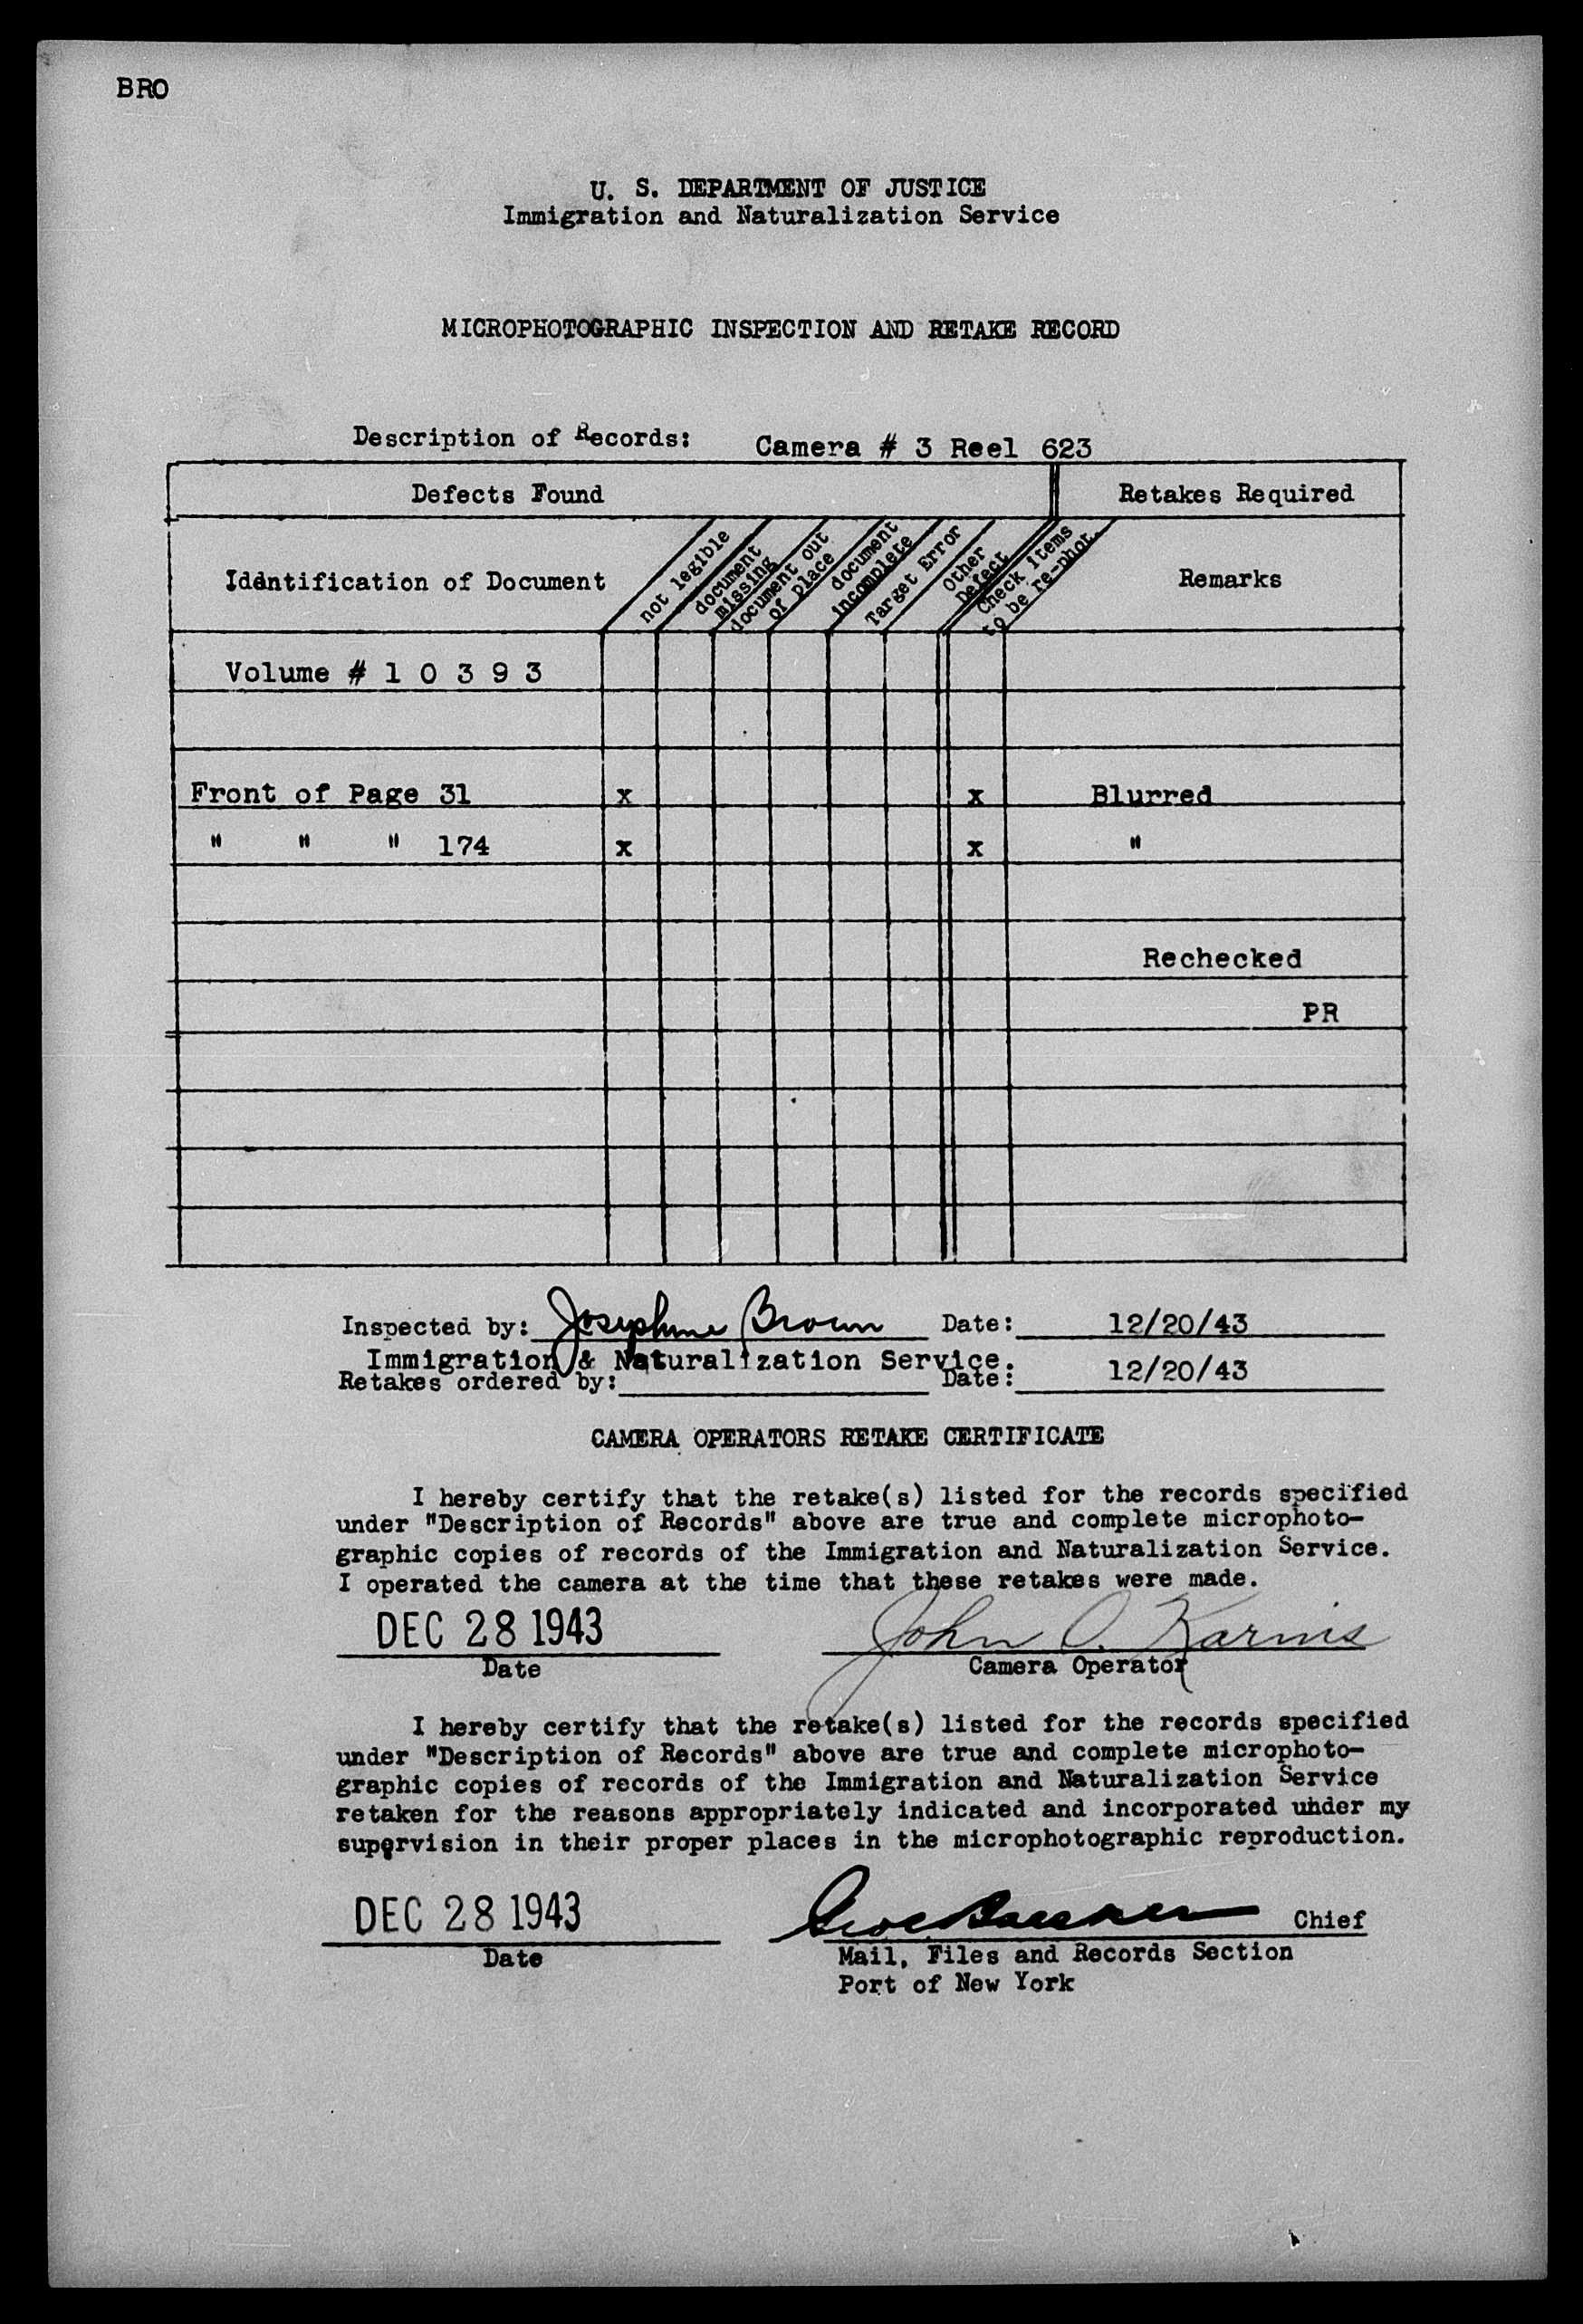 BRO
U. S. DEPARTMENT OF JUSTICE
Immigration and Naturalization Service
MICROPHOTOGRAPHIC INSPECTION AND RETAKE RECORD
Description of Records: Camera # 3 Reel 623
Defects Found Retakes Required
Identification of Document
not legible
document missing
document out of place
document incomplete
Target Error
Other Defect
Check Items to be re-phot.
Remarks
Volume # 1 0 3 9 3
Front of Page 31 x x Blurred
" " " 174 x x "
Rechecked
PR
Inspected by: Josephine Brown Date: 12/20/43
Immigration & Naturalization Service.
Retakes ordered by: Date: 12/20/43
CAMERA OPERATORS RETAKE CERTIFICATE
I hereby certify that the retake(s) listed for the records specified
under "Description of Records" above are true and complete microphoto-
graphic copies of records of the Immigration and Naturalization Service.
I operated the camera at the time that these retakes were made.
DEC 28 1943 John
Date Camera Operator
I hereby certify that the retake(s) listed for the records specified
under "Description of Records" above are true and complete microphoto-
graphic copies of records of the Immigration and Naturalization Service
retaken for the reasons appropriately indicated and incorporated under my
supervision in their proper places in the microphotographic reproduction.
DEC 28 1943 Chief
Date Mail, Files and Records Section
Port of New York